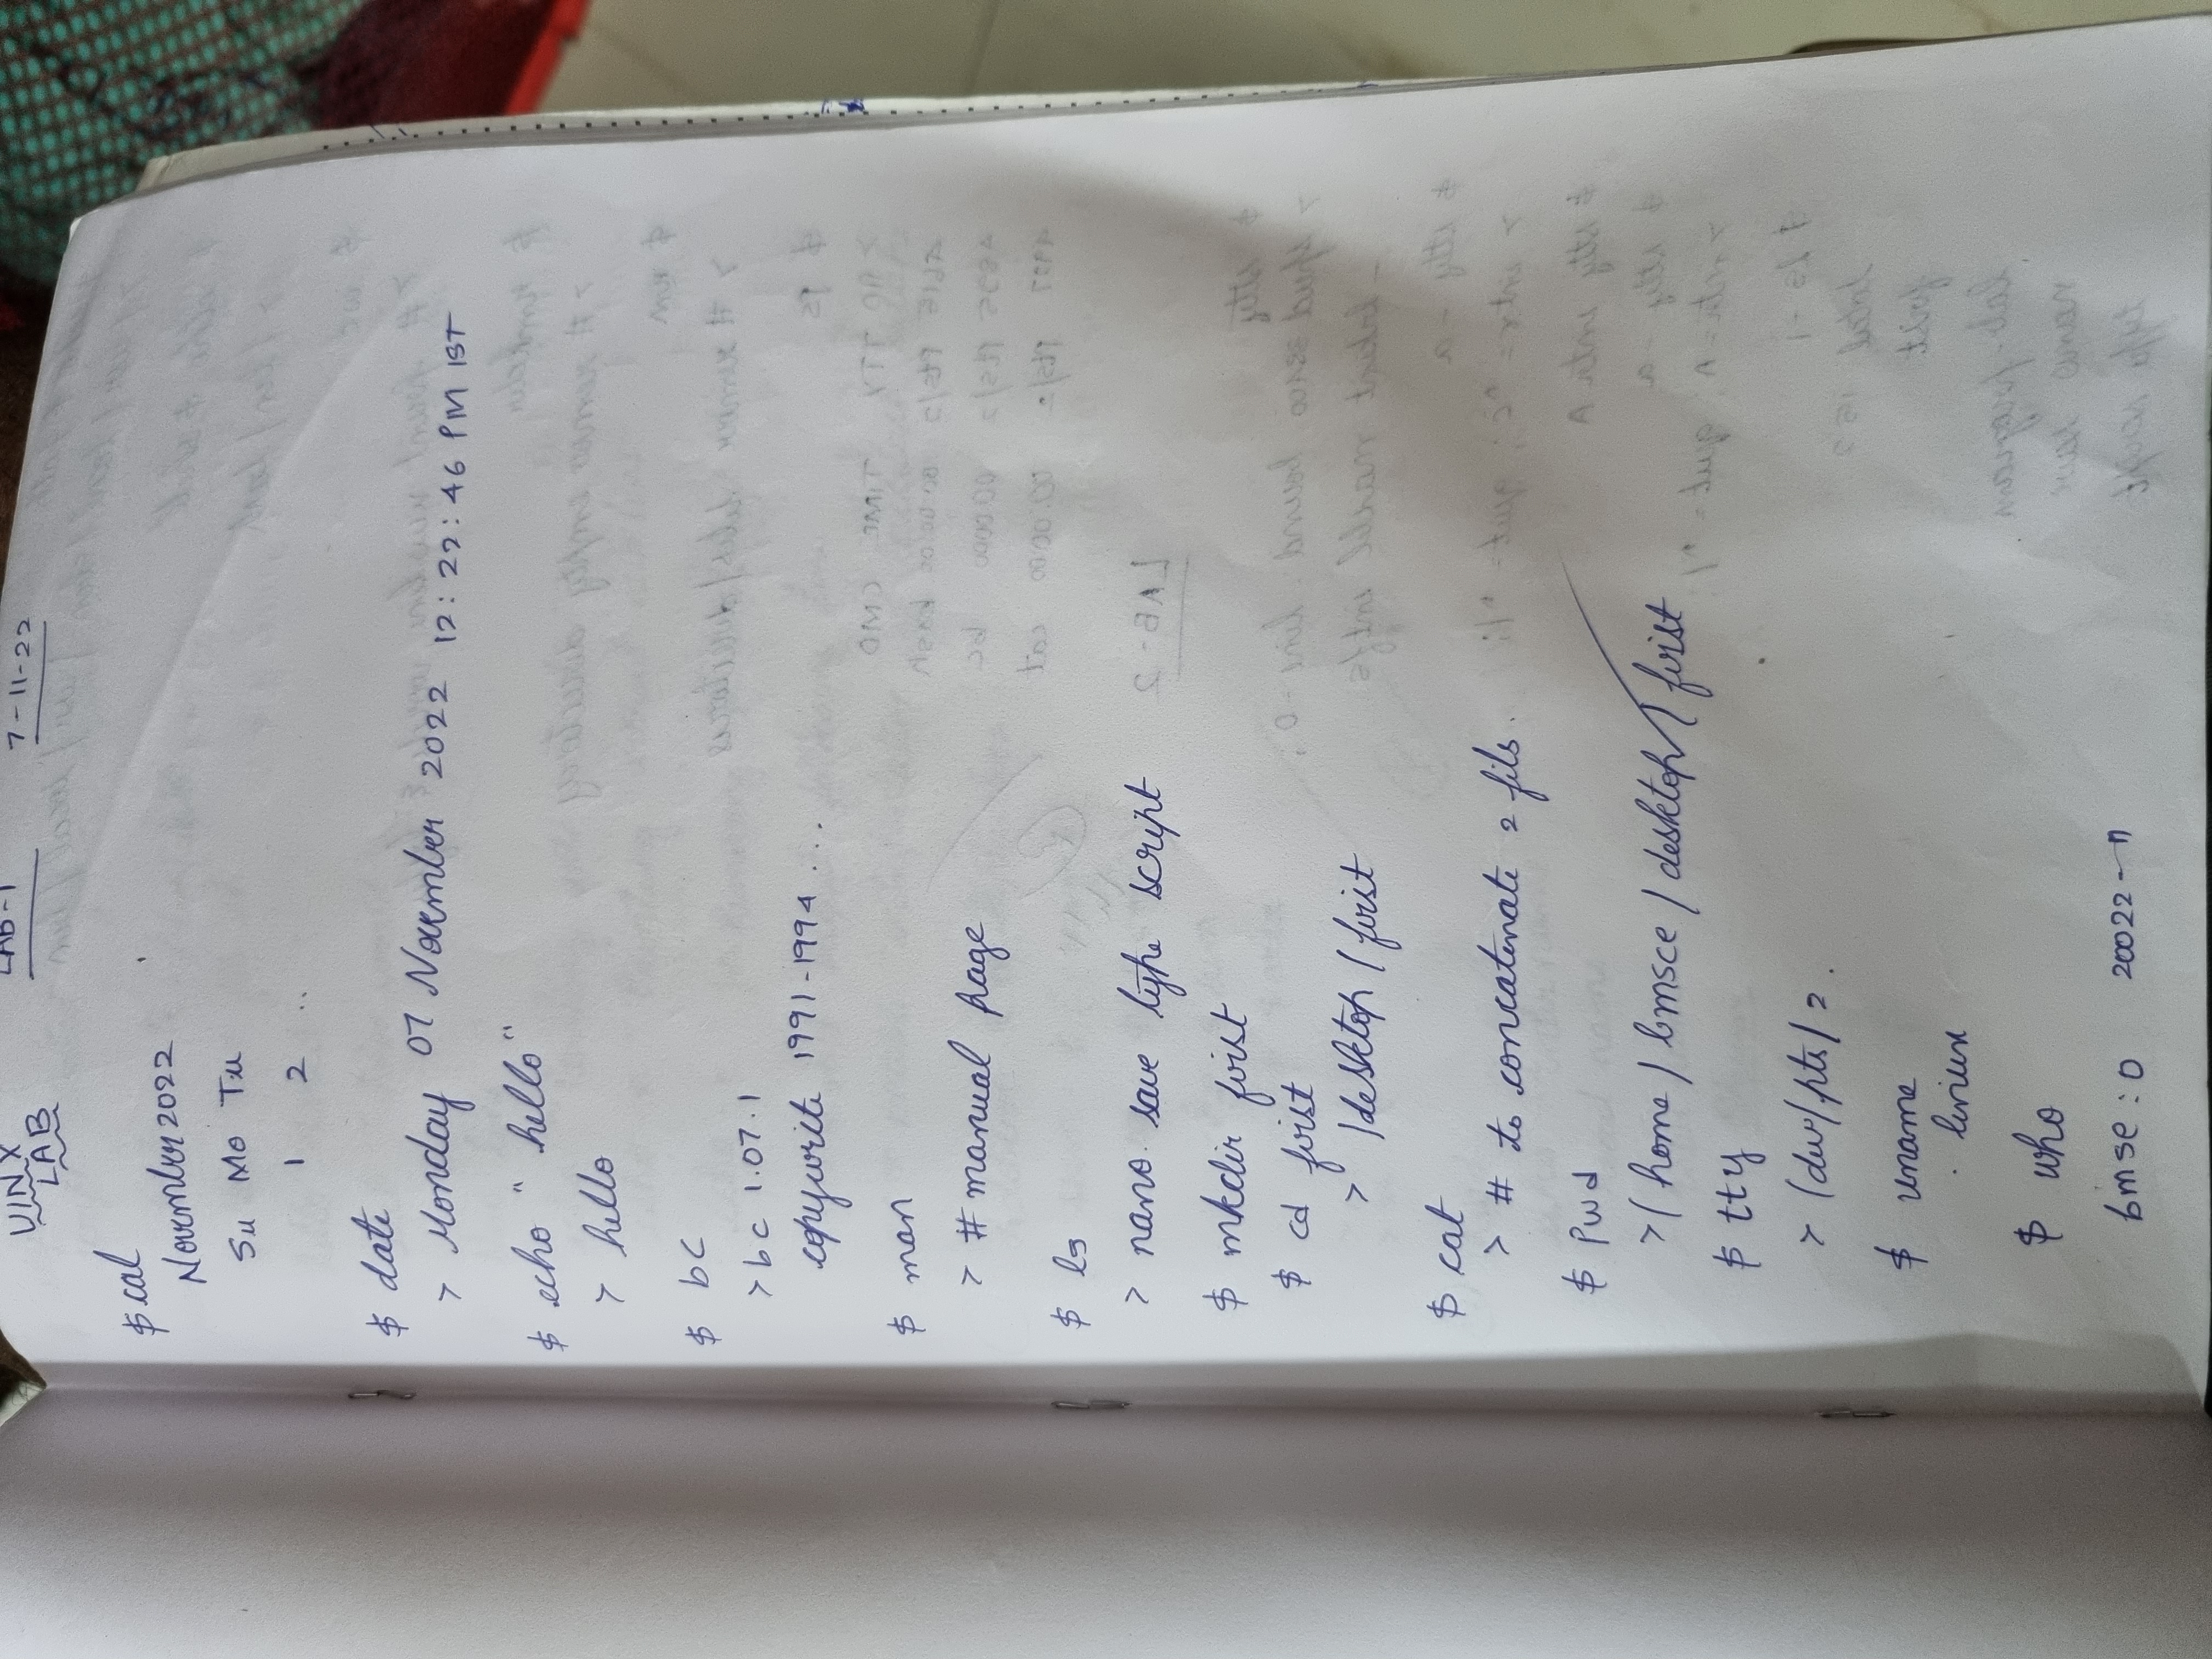 UINX LAB-1 7-11-22
LAB
$ cal
November 2022
Su Mo Tu
1 2 ..
$ date
> Monday 07 November 2022 12:22:46 PM IST
$ echo "hello"
> hello
$ bc
> bc 1.07.1
copywrite 1991-1994 ...
$ man
> # manual page
$ ls
> nano. save type script
$ mkdir first
$ cd first
> /desktop/first
$ cat
> # to concatenate 2 fils.
$ pwd
> /home/bmsce/desktop/first
$ tty
> /dev/pts/2.
$ uname
. linux
$ who
bmse:0 20022-